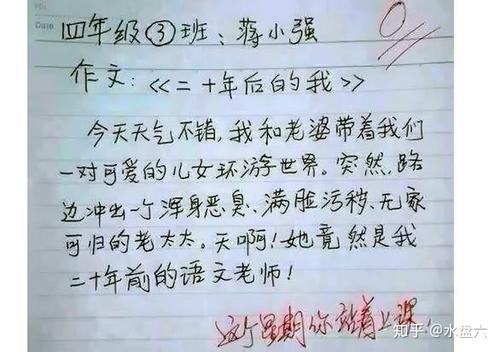 No
Date
四年级③班：蒋小强
0
作文：<<二十年后的我>>
今天天气不错，我和老婆带着我们
一对可爱的儿女环游世界。突然，路
边冲出一个浑身恶臭、满脸污秽、无家
可归的老太太。天啊！她竟然是我
二十年前的语文老师！
这个星期你站着上课
知乎 @水盘六